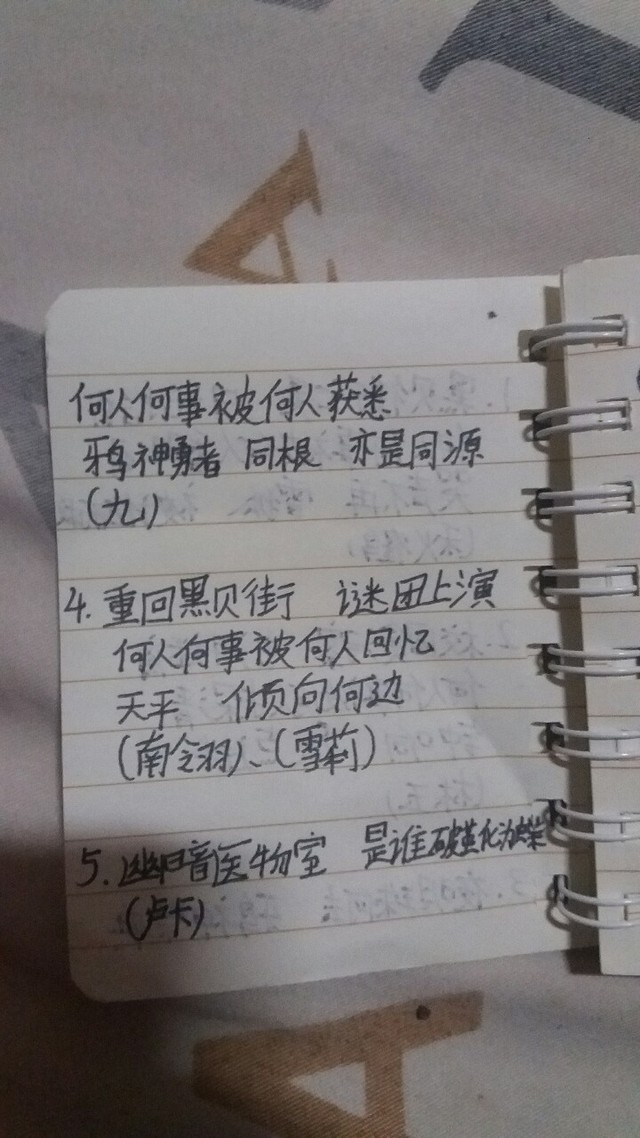 何人何事被何人获悉
鸦神勇者 同根 亦是同源
(九)
4. 重回黑贝街 谜团上演
何人何事被何人回忆
天平 倾向何边
(南令羽)、(雪莉)
5. 幽暗医物室 是谁破茧化为蝶
(卢卡)